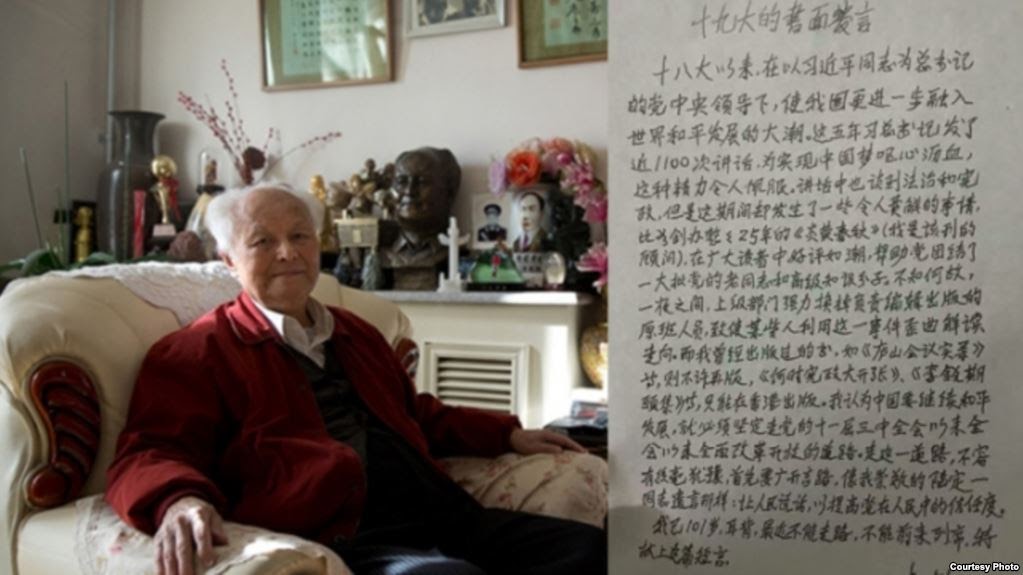 十九大的书面发言
十八大以来，在以习近平同志为总书记
的党中央领导下，使我国更进一步融入
世界和平发展的大潮。这五年习总书记发了
近1100次讲话，为实现中国梦呕心沥血，
这种精力令人佩服。讲话中也谈到法治和宪
政，但是这期间却发生了一些令人费解的事情，
比如创办整整25年的《炎黄春秋》（我是该刊的
顾问），在广大读者中好评如潮，帮助党团结了
一大批党的老同志和高级知识分子。不知何故，
一夜之间，上级部门强力换掉负责编辑出版的
原班人员，致使某些人利用这一事件歪曲解读
走向。而我曾经出版过的书，如《庐山会议实录》
等，则不许再版，《何时宪政大开张》、《李锐期
颐集》等，只能在香港出版。我认为中国要继续和平
发展，就必须坚定走党的十一届三中全会以来全
会以来全面改革开放的道路。走这一道路，不容
有丝毫犹豫，首先要广开言路，像我尊敬的陆定一
同志遗言那样：让人民说话，以提高党在人民中的信任度。
我已101岁，耳背，最近不能走路，不能前来列席，特
献上这篇短言。
Courtesy Photo